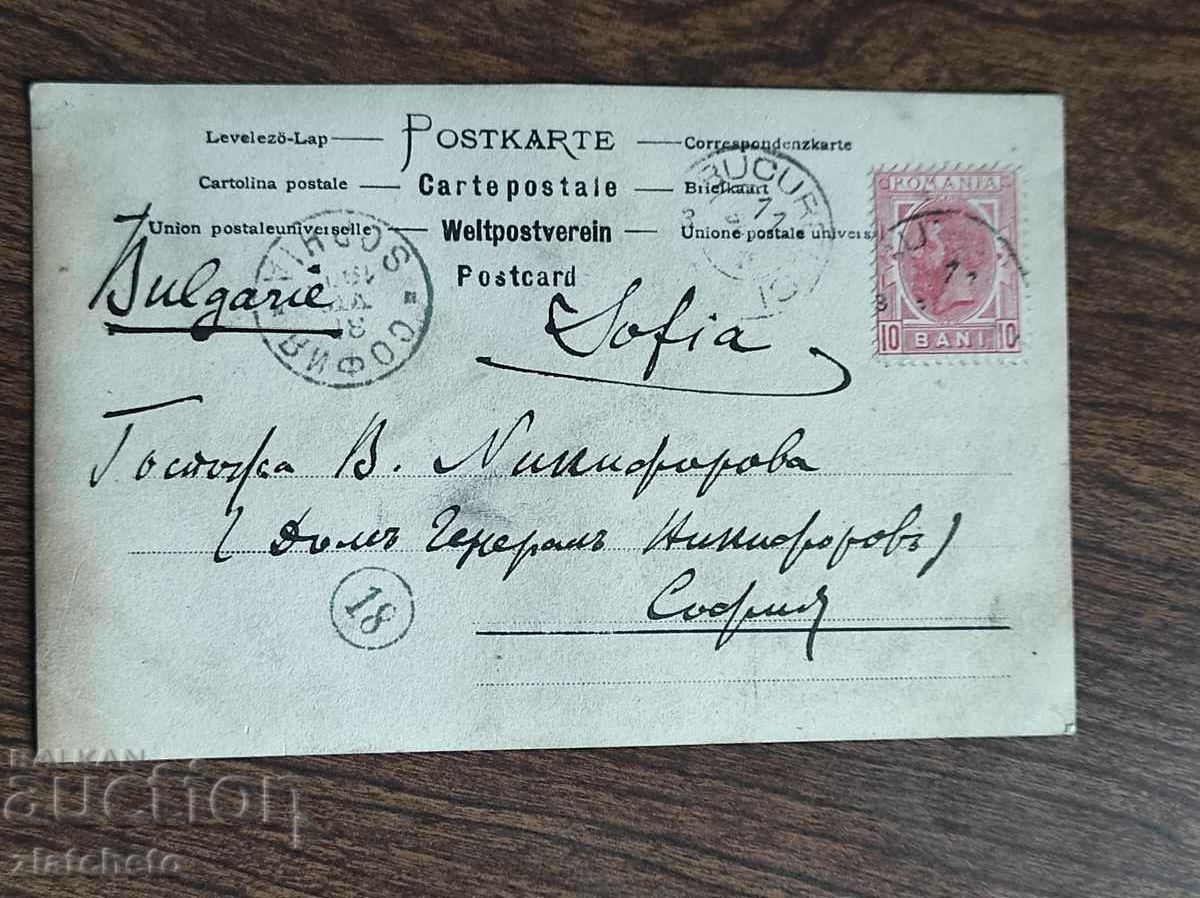 Levelezö-Lap — POSTKARTE — Correspondenzkarte
Cartolina postale — Cartepostale — Briefkaart
Union postale universelle — Weltpostverein — Unione postale univers
Postcard
BUCUR
11
ROMANIA
10 BANI 10
SOPHIA
СОФИЯ
Bulgarie
Sofia
Госпожа В. Никифорова
(Домъ Генералъ Никифоровъ)
София
18
BALKAN
auction
zlatcheto